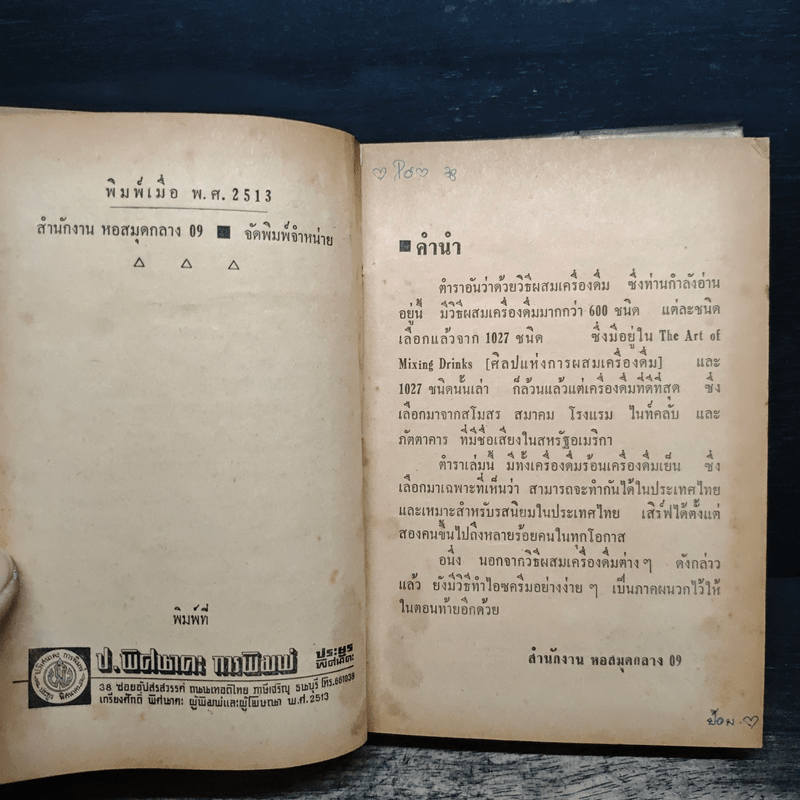 พิมพ์เมื่อ พ.ศ. 2513
สำนักงาน หอสมุดกลาง 09 ■ จัดพิมพ์จำหน่าย
△ △ △
พิมพ์ที่
ป.พิศนาคะ การพิมพ์
ประยูร
พิศนาคะ
38 ซอยอัปสรสวรรค์ ถนนเทอดไทย ภาษีเจริญ ธนบุรี โทร.661038
เกรียงศักดิ์ พิศนาคะ ผู้พิมพ์และผู้โฆษณา พ.ศ.2513
■ คำนำ
ตำราอันว่าด้วยวิธีผสมเครื่องดื่ม ซึ่งท่านกำลังอ่าน
อยู่นี้ มีวิธีผสมเครื่องดื่มมากกว่า 600 ชนิด แต่ละชนิด
เลือกแล้วจาก 1027 ชนิด ซึ่งมีอยู่ใน The Art of
Mixing Drinks [ศิลปแห่งการผสมเครื่องดื่ม] และ
1027 ชนิดนั้นเล่า ก็ล้วนแล้วแต่เครื่องดื่มที่ดีที่สุด ซึ่ง
เลือกมาจากสโมสร สมาคม โรงแรม ไนท์คลับ และ
ภัตตาคาร ที่มีชื่อเสียงในสหรัฐอเมริกา
ตำราเล่มนี้ มีทั้งเครื่องดื่มร้อนเครื่องดื่มเย็น ซึ่ง
เลือกมาเฉพาะที่เห็นว่า สามารถจะทำกันได้ในประเทศไทย
และเหมาะสำหรับรสนิยมในประเทศไทย เสิร์ฟได้ตั้งแต่
สองคนขึ้นไปถึงหลายร้อยคนในทุกโอกาส
อนึ่ง นอกจากวิธีผสมเครื่องดื่มต่าง ๆ ดังกล่าว
แล้ว ยังมีวิธีทำไอซครีมอย่างง่าย ๆ เป็นภาคผนวกไว้ให้
ในตอนท้ายอีกด้วย
สำนักงาน หอสมุดกลาง 09